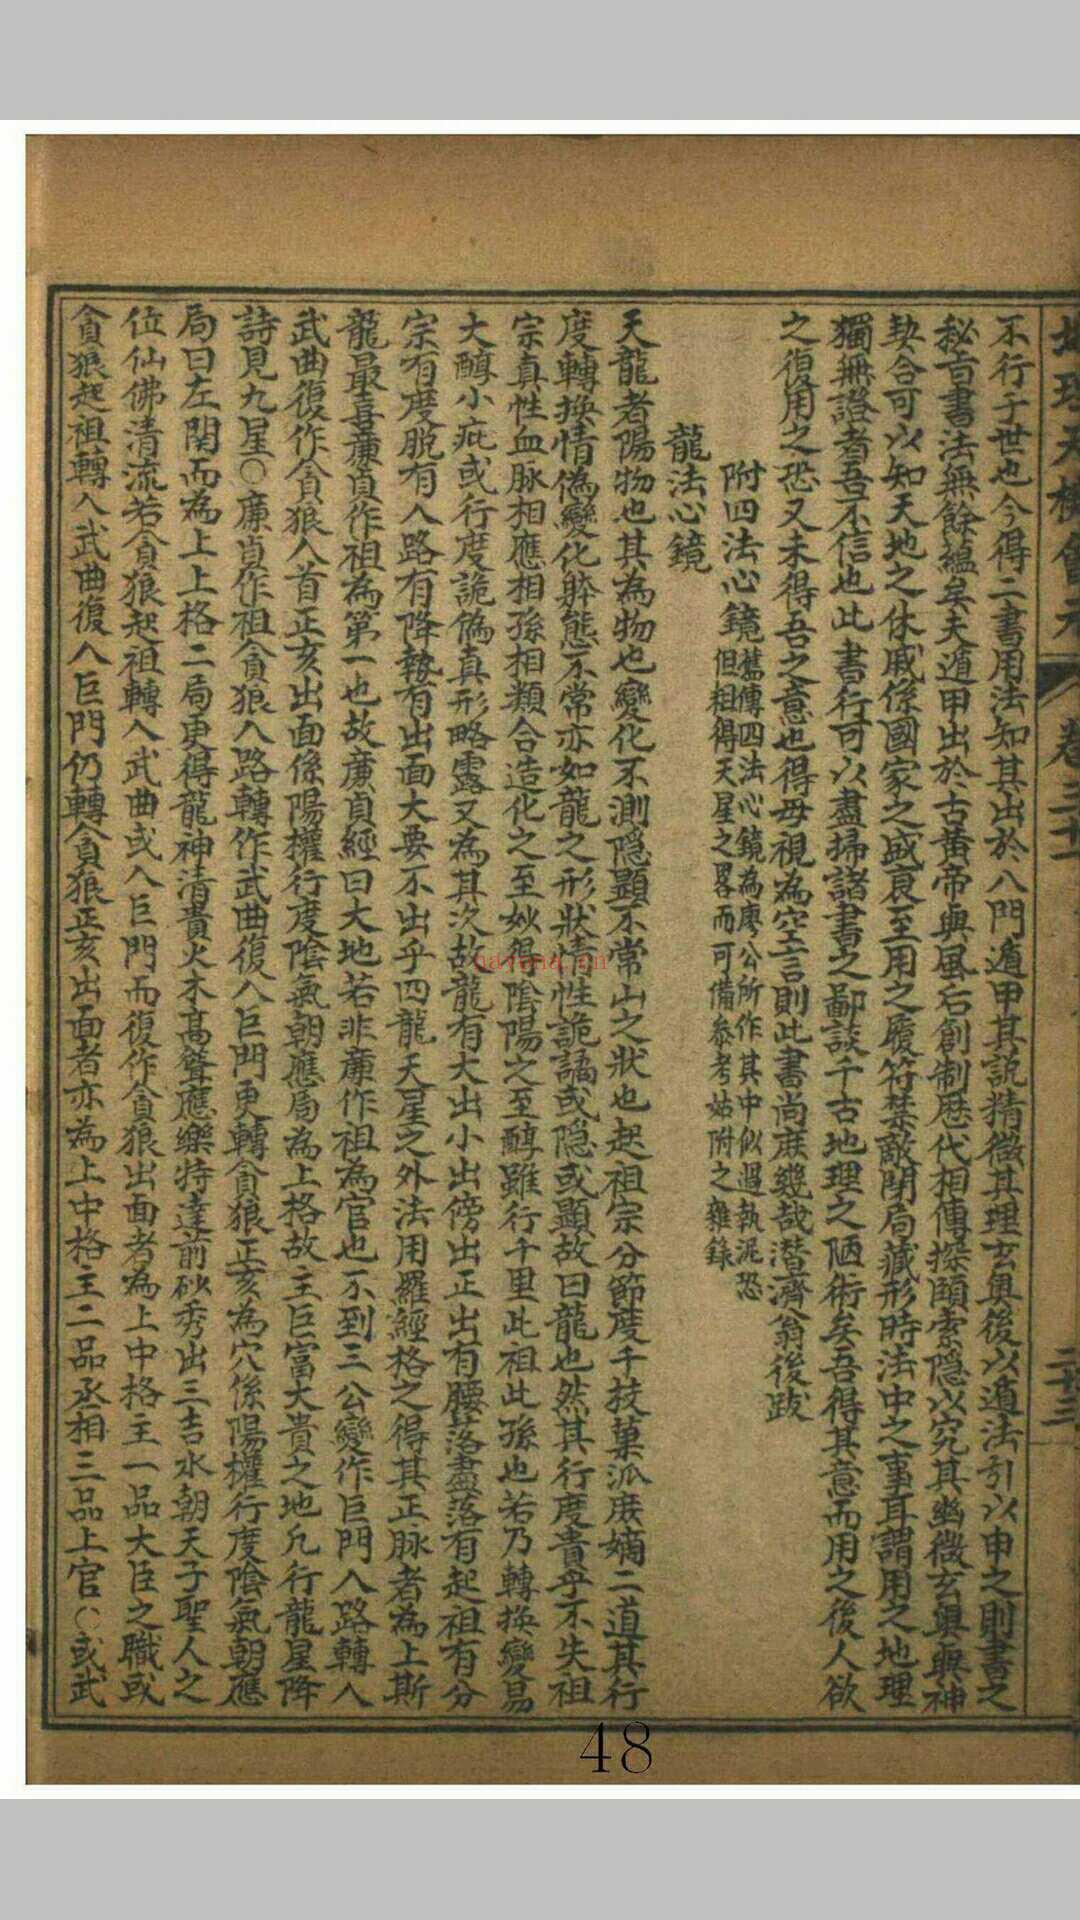 不行于世也今得二書用法知其出於八門遁甲其説精微其理玄奥後以遁法引以申之則書之
秘旨書法無餘緼矣夫遁甲出於古黄帝與風后創制歷代相傳探頤索隱以究其幽微玄奥與神
契合可以知天地之休戚係國家之盛衰至用之履符禁敵閉局藏形時法中之事耳謂用之地理
獨無證者吾不信也此書行可以盡掃諸書之鄙談千古地理之陋術矣吾得其意而用之後人欲
之復修用之恐又未得吾之意也得毋視為空言則此書尚庶幾哉潜齋翁後跋
附四法心鏡
舊傳四法心鏡為廖公所作其中似過執泥恐
但粗得天星之畧而可備參考姑附之雜錄
龍法心鏡
天龍者陽物也其為物也變化不測隱顯不常山之狀也起祖宗分節度千技菓派庻嫡二道其行
度轉換情偽變化躰態不常亦如龍之形狀情性詭譎或隱或顯故曰龍也然其行度貴乎不失祖
宗真性血脉相應相孫相類合造化之至妙得陰陽之至醇雖行千里此祖此孫也若乃轉換變易
大醇小疵或行度詭偽真形略露又為其次故龍有大出小出傍出正出有腰落盡落有起祖有分
宗有度脱有入路有降勢有出面大要不出乎四龍天星之外法用羅經格之得其正脉者為上斯
龍最喜廉貞作祖為第一也故廉貞經曰大地若非廉作祖為官也不到三公變作巨門入路轉入
武曲復作貪狼入首正亥出面係陽權行度陰氣朝應局為上格故主巨富大貴之地凡行龍星降
詩見九星○廉貞作祖貪狼入路轉作武曲復入巨門更轉貪狼正亥為穴係陽權行度陰氣朝應
局曰左関而為上上格二局更得龍神清貴火木高聳應樂特達前砂秀出三吉水朝天子聖人之
位仙佛清流若貪狼起祖轉入武曲或入巨門而復作貪狼出面者為上中格主一品大臣之職或
貪狼起祖轉入武曲復入巨門仍轉貪狼正亥出面者亦為上中格主二品丞相三品上官○或武
卷三十
二十三
48
nayona.cn